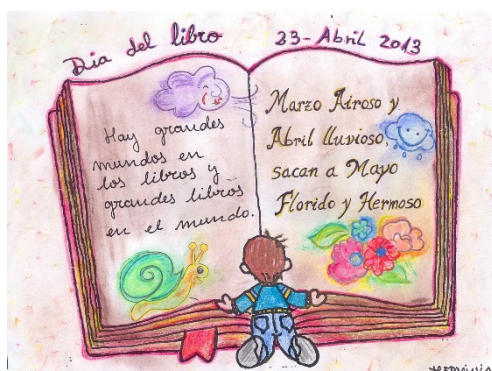 Dia del libro 23-Abril 2013
Hay grandes
mundos en
los libros y
grandes libros
en el mundo.
Marzo Airoso y
Abril lluvioso,
sacan a Mayo
Florido y Hermoso